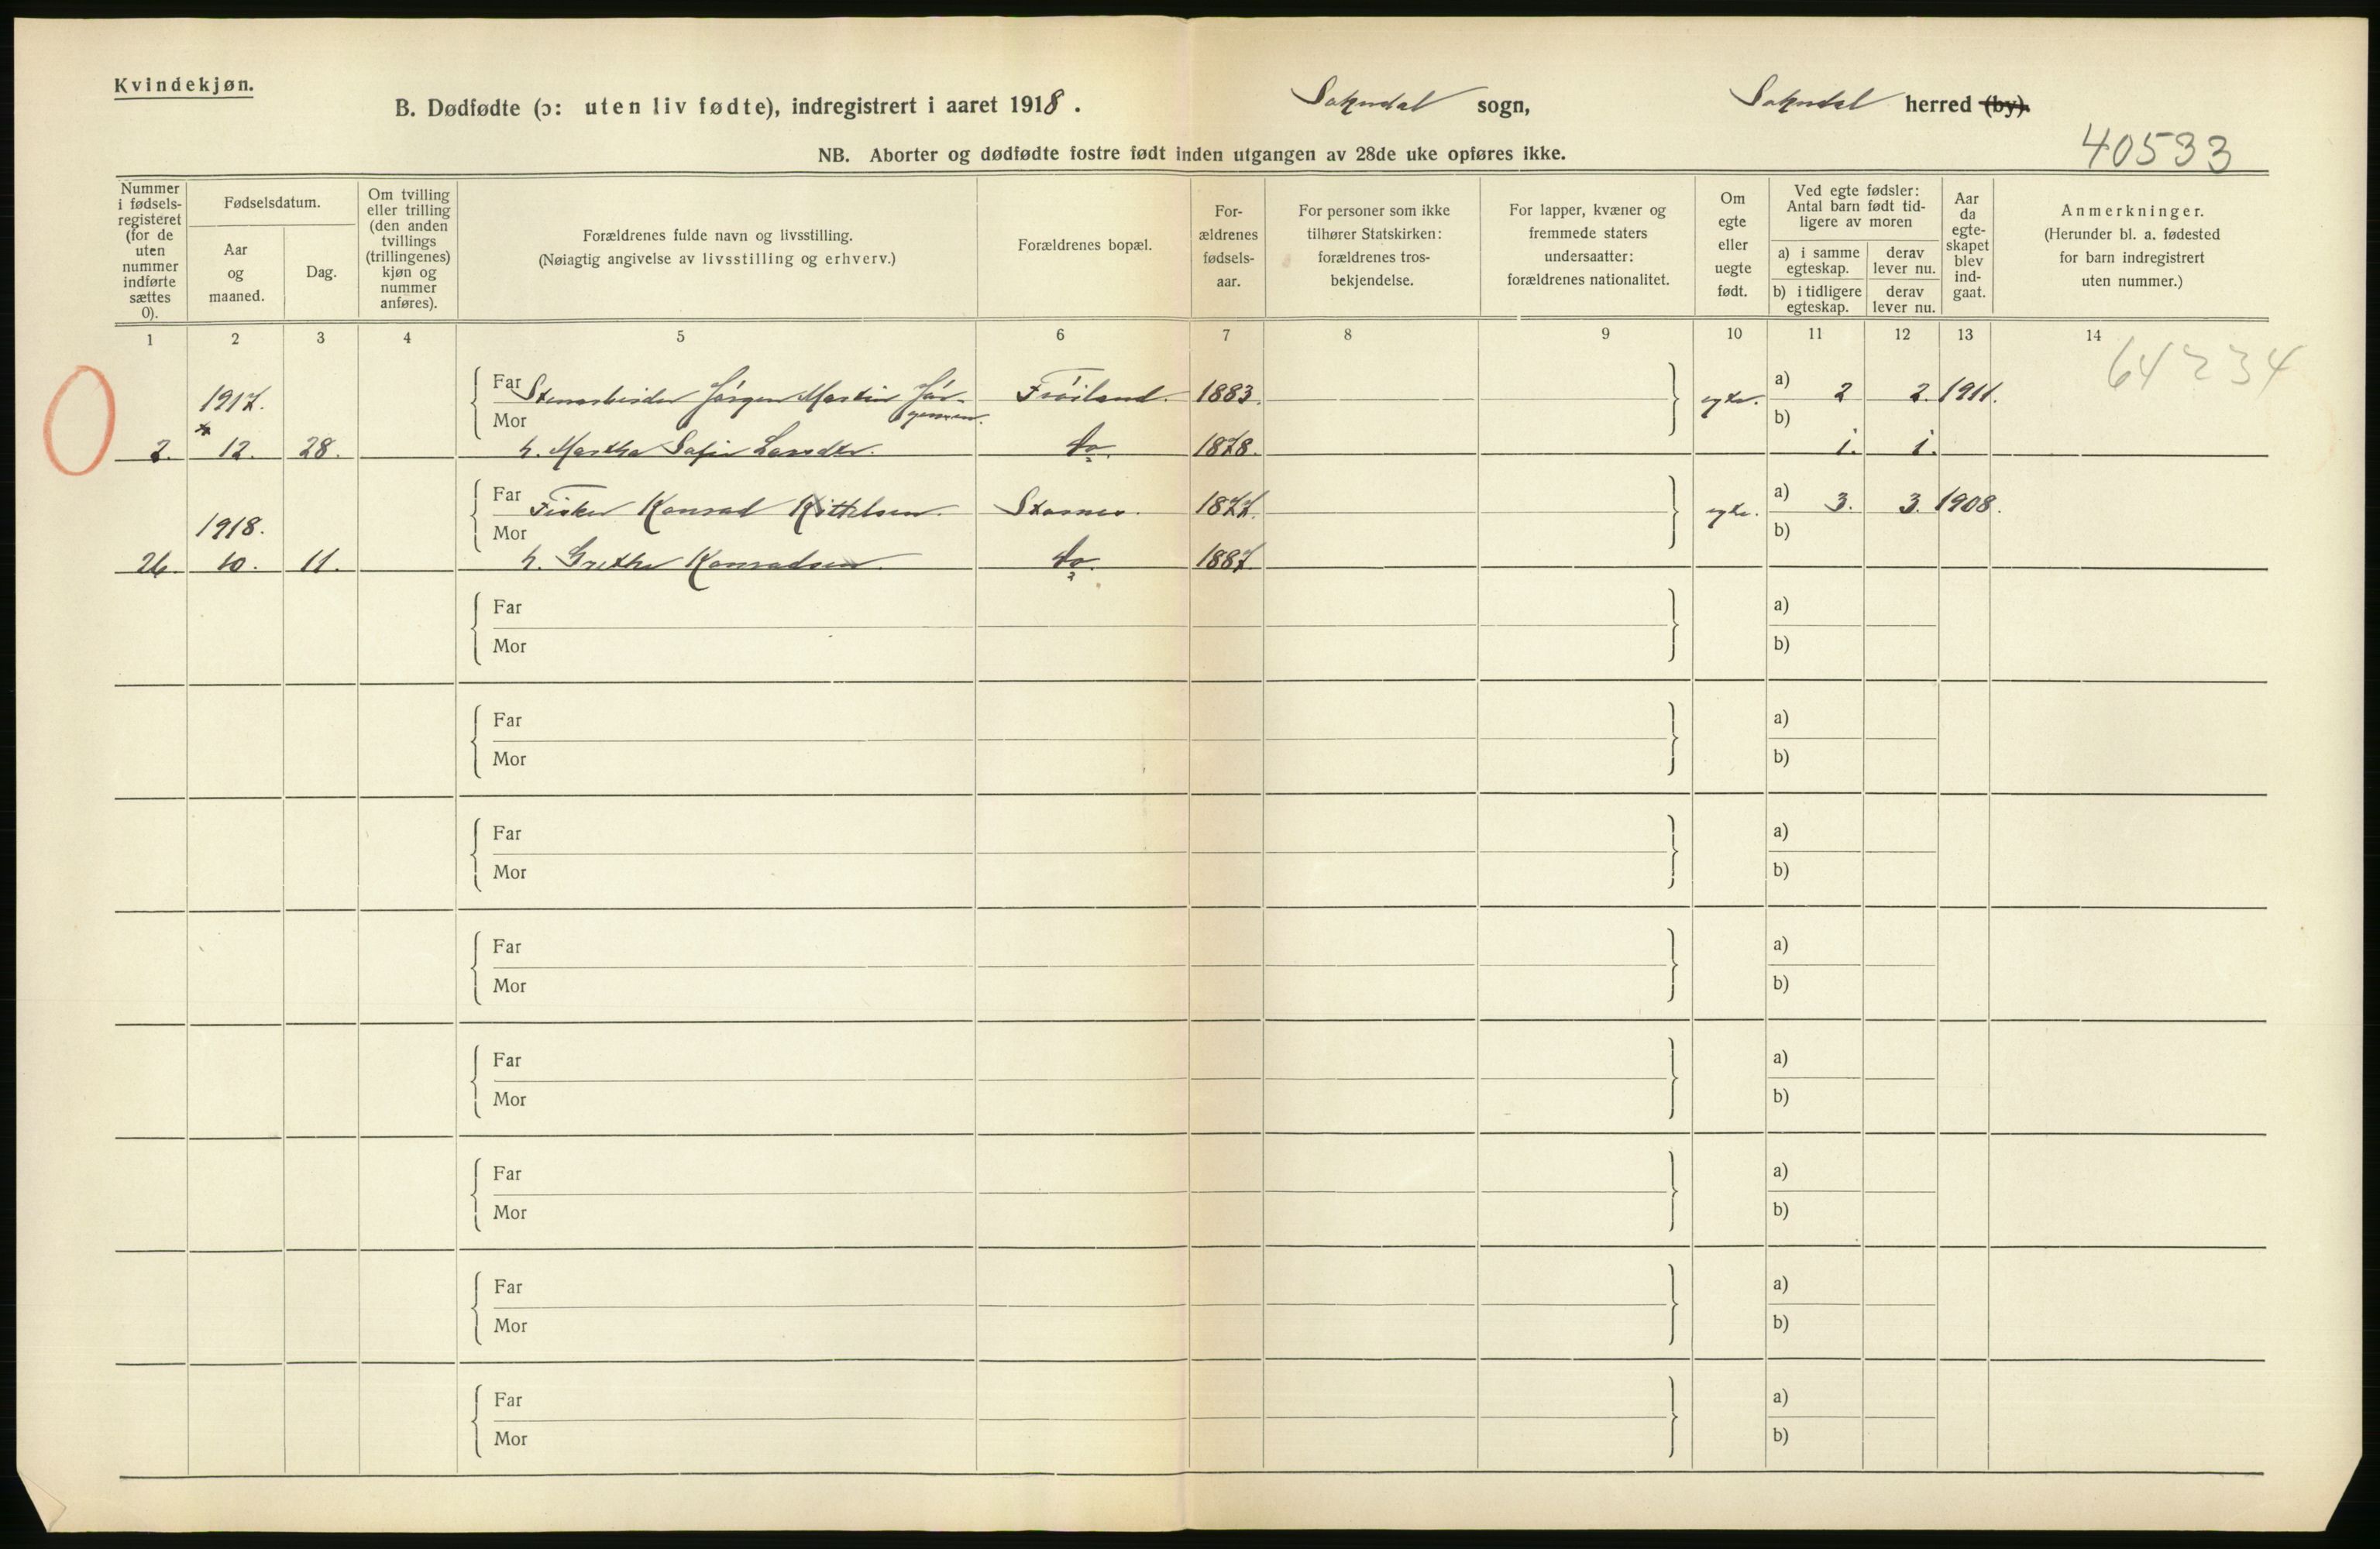 Kvindekjøn.
B. Dødfødte (ɔ: uten liv fødte), indregistrert i aaret 1918. Sokndal sogn, Sokndal herred (by).
40533
NB. Aborter og dødfødte fostre født inden utgangen av 28de uke opføres ikke.
Nummer i fødsels-registeret (for de uten nummer indførte sættes 0).
Fødselsdatum.
Aar og maaned.
Dag.
Om tvilling eller trilling (den anden tvillings (trillingenes) kjøn og nummer anføres).
Forældrenes fulde navn og livsstilling.
(Nøiagtig angivelse av livsstilling og erhverv.)
Forældrenes bopæl.
For-ældrenes fødsels-aar.
For personer som ikke tilhører Statskirken: forældrenes tros-bekjendelse.
For lapper, kvæner og fremmede staters undersaatter: forældrenes nationalitet.
Om egte eller uegte født.
Ved egte fødsler: Antal barn født tid-ligere av moren
a) i samme egteskap.
derav lever nu.
b) i tidligere egteskap.
derav lever nu.
Aar da egte-skapet blev ind-gaat.
Anmerkninger.
(Herunder bl. a. fødested for barn indregistrert uten nummer.)
1 2 3 4 5 6 7 8 9 10 11 12 13 14
64234
1917. Far Stenarbeider Jørgen Martin Jør- Frøiland. 1883. egte. a) 2 2. 1911.
gensen.
Mor b)
2. 12. 28. h. Martha Sofie do. 1878. 1. 1.
1918. Far Fisker Konrad Kittelsen. Stornes. 1877. egte. a) 3. 3. 1908.
Mor b)
26. 10. 11. h. Grethe Konradsen. do. 1887.
Far a)
Mor b)
Far a)
Mor b)
Far a)
Mor b)
Far a)
Mor b)
Far a)
Mor b)
Far a)
Mor b)
Far a)
Mor b)
Far a)
Mor b)